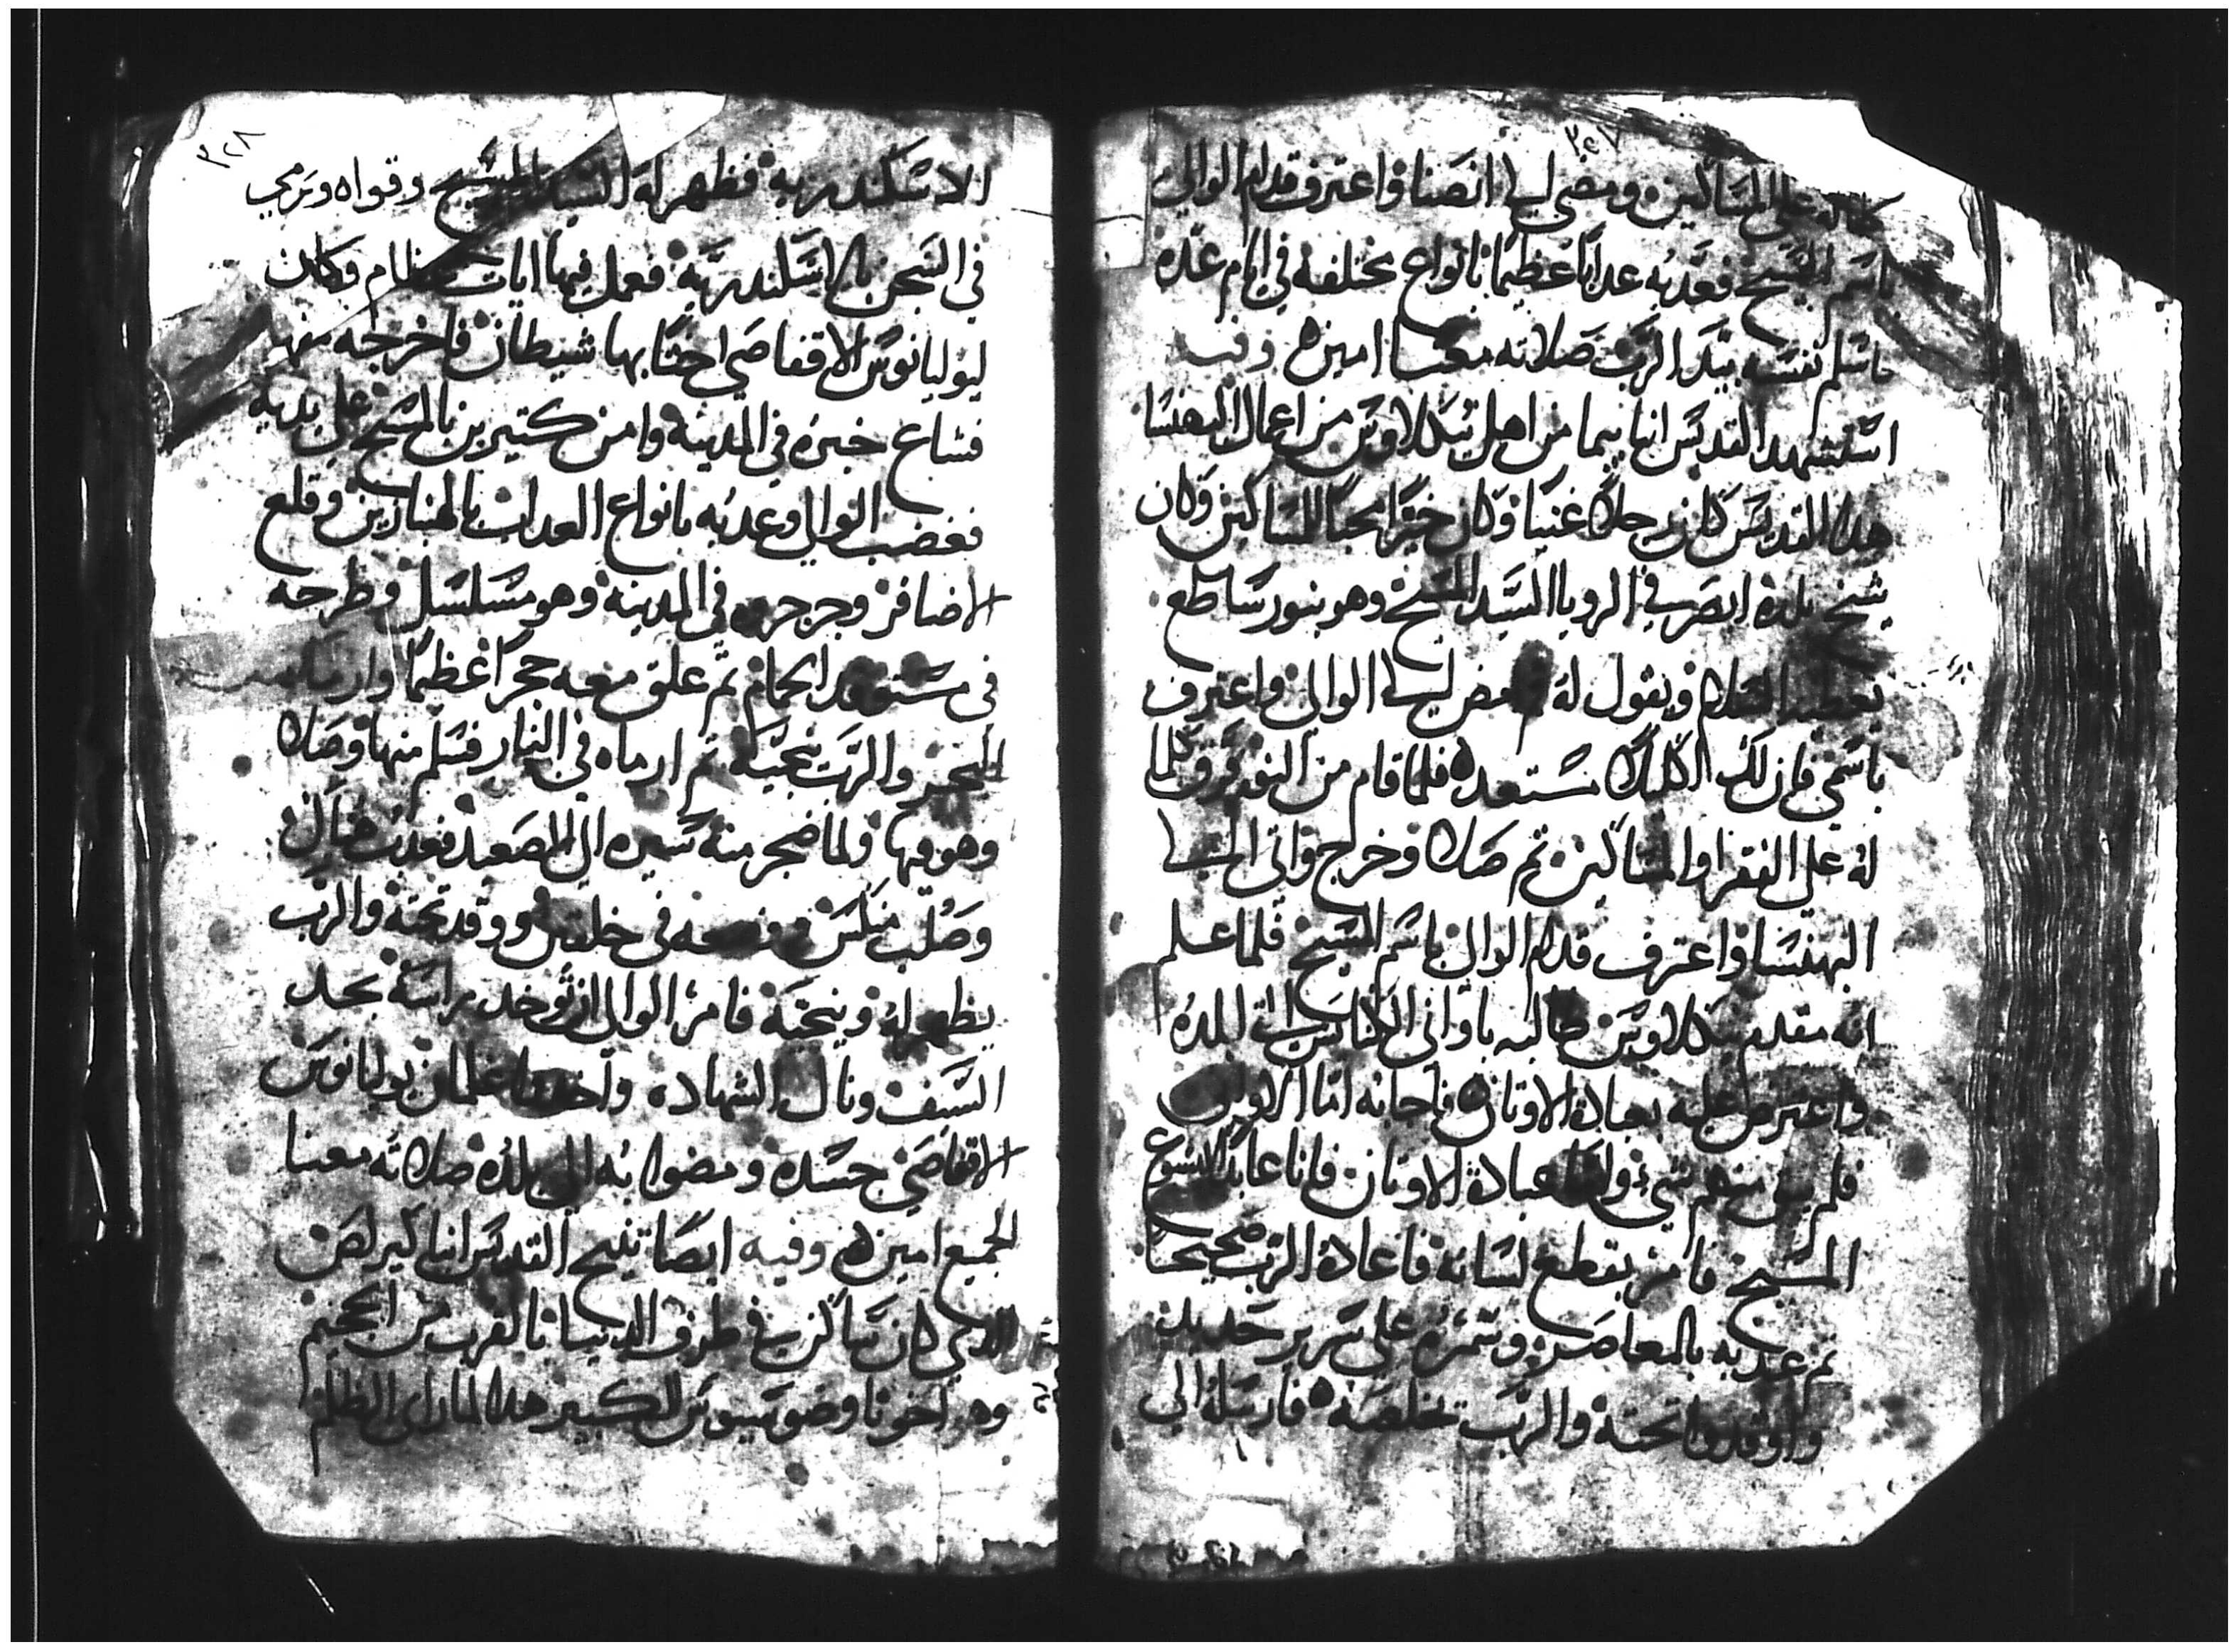 ٣٥٧
ماله على المساكين ومضى الى انصنا واعترف قدام الوالى
باسم المسيح فعذبه عدابا عظيما بانواع مختلفه في ايام عده
فاسلم نفسه بيد الرب صلاته معنا امين وفيه
استشهد القديس انبا بيما من اهل بنكلاوس من اعمال البهنسا
هدا القديس كان رجلا غنيا وكان خيرا محبا للمساكين وكان
شيخ بلده ابصر في الرويا السيد المسيح وهو بنور ساطع
يعطيه السلام ويقول له امض الى الوالى واعترف
باسمي فان لك اكليلا مستعده فلما قام من النوم فرق كلما
له على الفقرا والمساكين ثم صلا وخرج واتى الى
البهنسا واعترف قدام الوالى باسم المسيح فلما علم
انه مقدم بنكلاوس طالبه باوانى الكنايس التى البلده
واعترض عليه بعبادة الاوتان فاجابه اما الاوانى
فلم يبق منهم شي واما عبادة الاوتان فانا عابد لايسوع
المسيح فامر بقطع لسانه فاعاده الرب صحيحا
ثم عدبه بالمعاصر وسمره على سرير حديد
واوقدوا تحته والرب يخلصه فارسله الى
٣٢٨
الاسكندريه فظهر له السيد المسيح وقواه ورمي
في السجن بالاسكندريه فعمل فيها ايات عظام وكان
ليوليانوس الاقفاصي اختا بها شيطان فاخرجه منها
فشاع خبره في المدينة وامن كتيرين بالمسيح على يديه
فغضب الوالى وعدبه بانواع العداب بالهنبازين وقلع
الاضافر وجرجره في المدينه وهو مسلسل وطرحه
في مستوقد الحمام ثم علق معه حجرا عظيما وارماه
البحر والرب نجيه ثم ارماه في النار فسلم منها وصلا
وهو فيها ولما ضجر منه سيره الى الصعيد فعدب هناك
وصلب منكس في خلقين ووقد تحته والرب
يظهر له وينجيه فامر الوالى ان توخد راسه بحد
السيف ونال الشهاده واخدوا غلمان يوليانوس
الاقفاصي جسده ومضوا به الى بلده صلاته معنا
الجميع امين وفيه ايضا تنيح القديس انبا كيرلص
الدي كان ساكن في طرف الدنيا بالقرب من الجحيم
وهو اخو تاوضوسيوس الكبير هدا لما راى الظلم